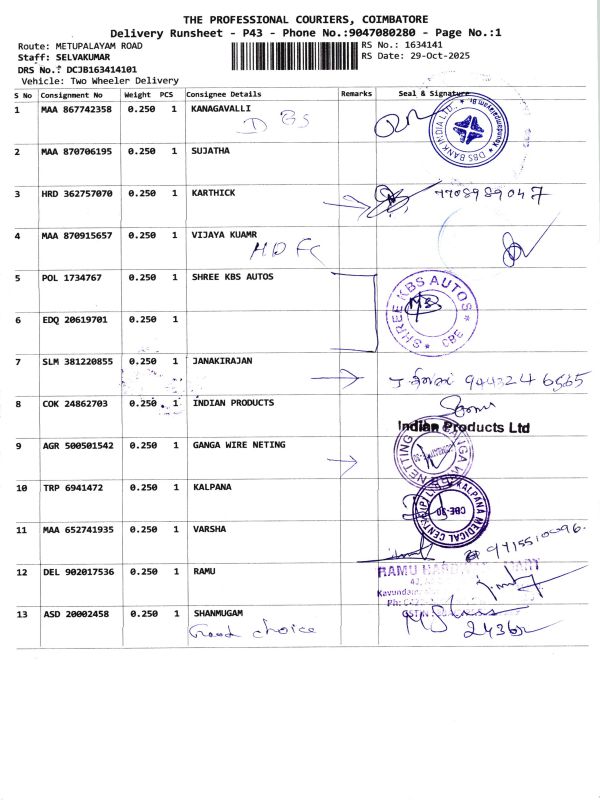 THE PROFESSIONAL COURIERS, COIMBATORE
Delivery Runsheet - P43 - Phone No.:9047080280 - Page No.:1
Route: METUPALAYAM ROAD RS No.: 1634141
Staff: SELVAKUMAR RS Date: 29-Oct-2025
DRS No.: DCJB163414101
Vehicle: Two Wheeler Delivery
S No Consignment No Weight PCS Consignee Details Remarks Seal & Signature
1 MAA 867742358 0.250 1 KANAGAVALLI
DBS
DBS BANK INDIA LTD.
2 MAA 870706195 0.250 1 SUJATHA
3 HRD 362757070 0.250 1 KARTHICK 7708989047
4 MAA 870915657 0.250 1 VIJAYA KUAMR
HDFC
5 POL 1734767 0.250 1 SHREE KBS AUTOS
SHREE KBS AUTOS
CBE
6 EDQ 20619701 0.250 1
7 SLM 381220855 0.250 1 JANAKIRAJAN
8 COK 24862703 0.250 1 INDIAN PRODUCTS
Indian Products Ltd
9 AGR 500501542 0.250 1 GANGA WIRE NETING
NETTING
10 TRP 6941472 0.250 1 KALPANA
KALPANA MEDICAL CENTRE
CBE-30
11 MAA 652741935 0.250 1 VARSHA
12 DEL 902017536 0.250 1 RAMU
RAMU
13 ASD 20002458 0.250 1 SHANMUGAM
Good choice